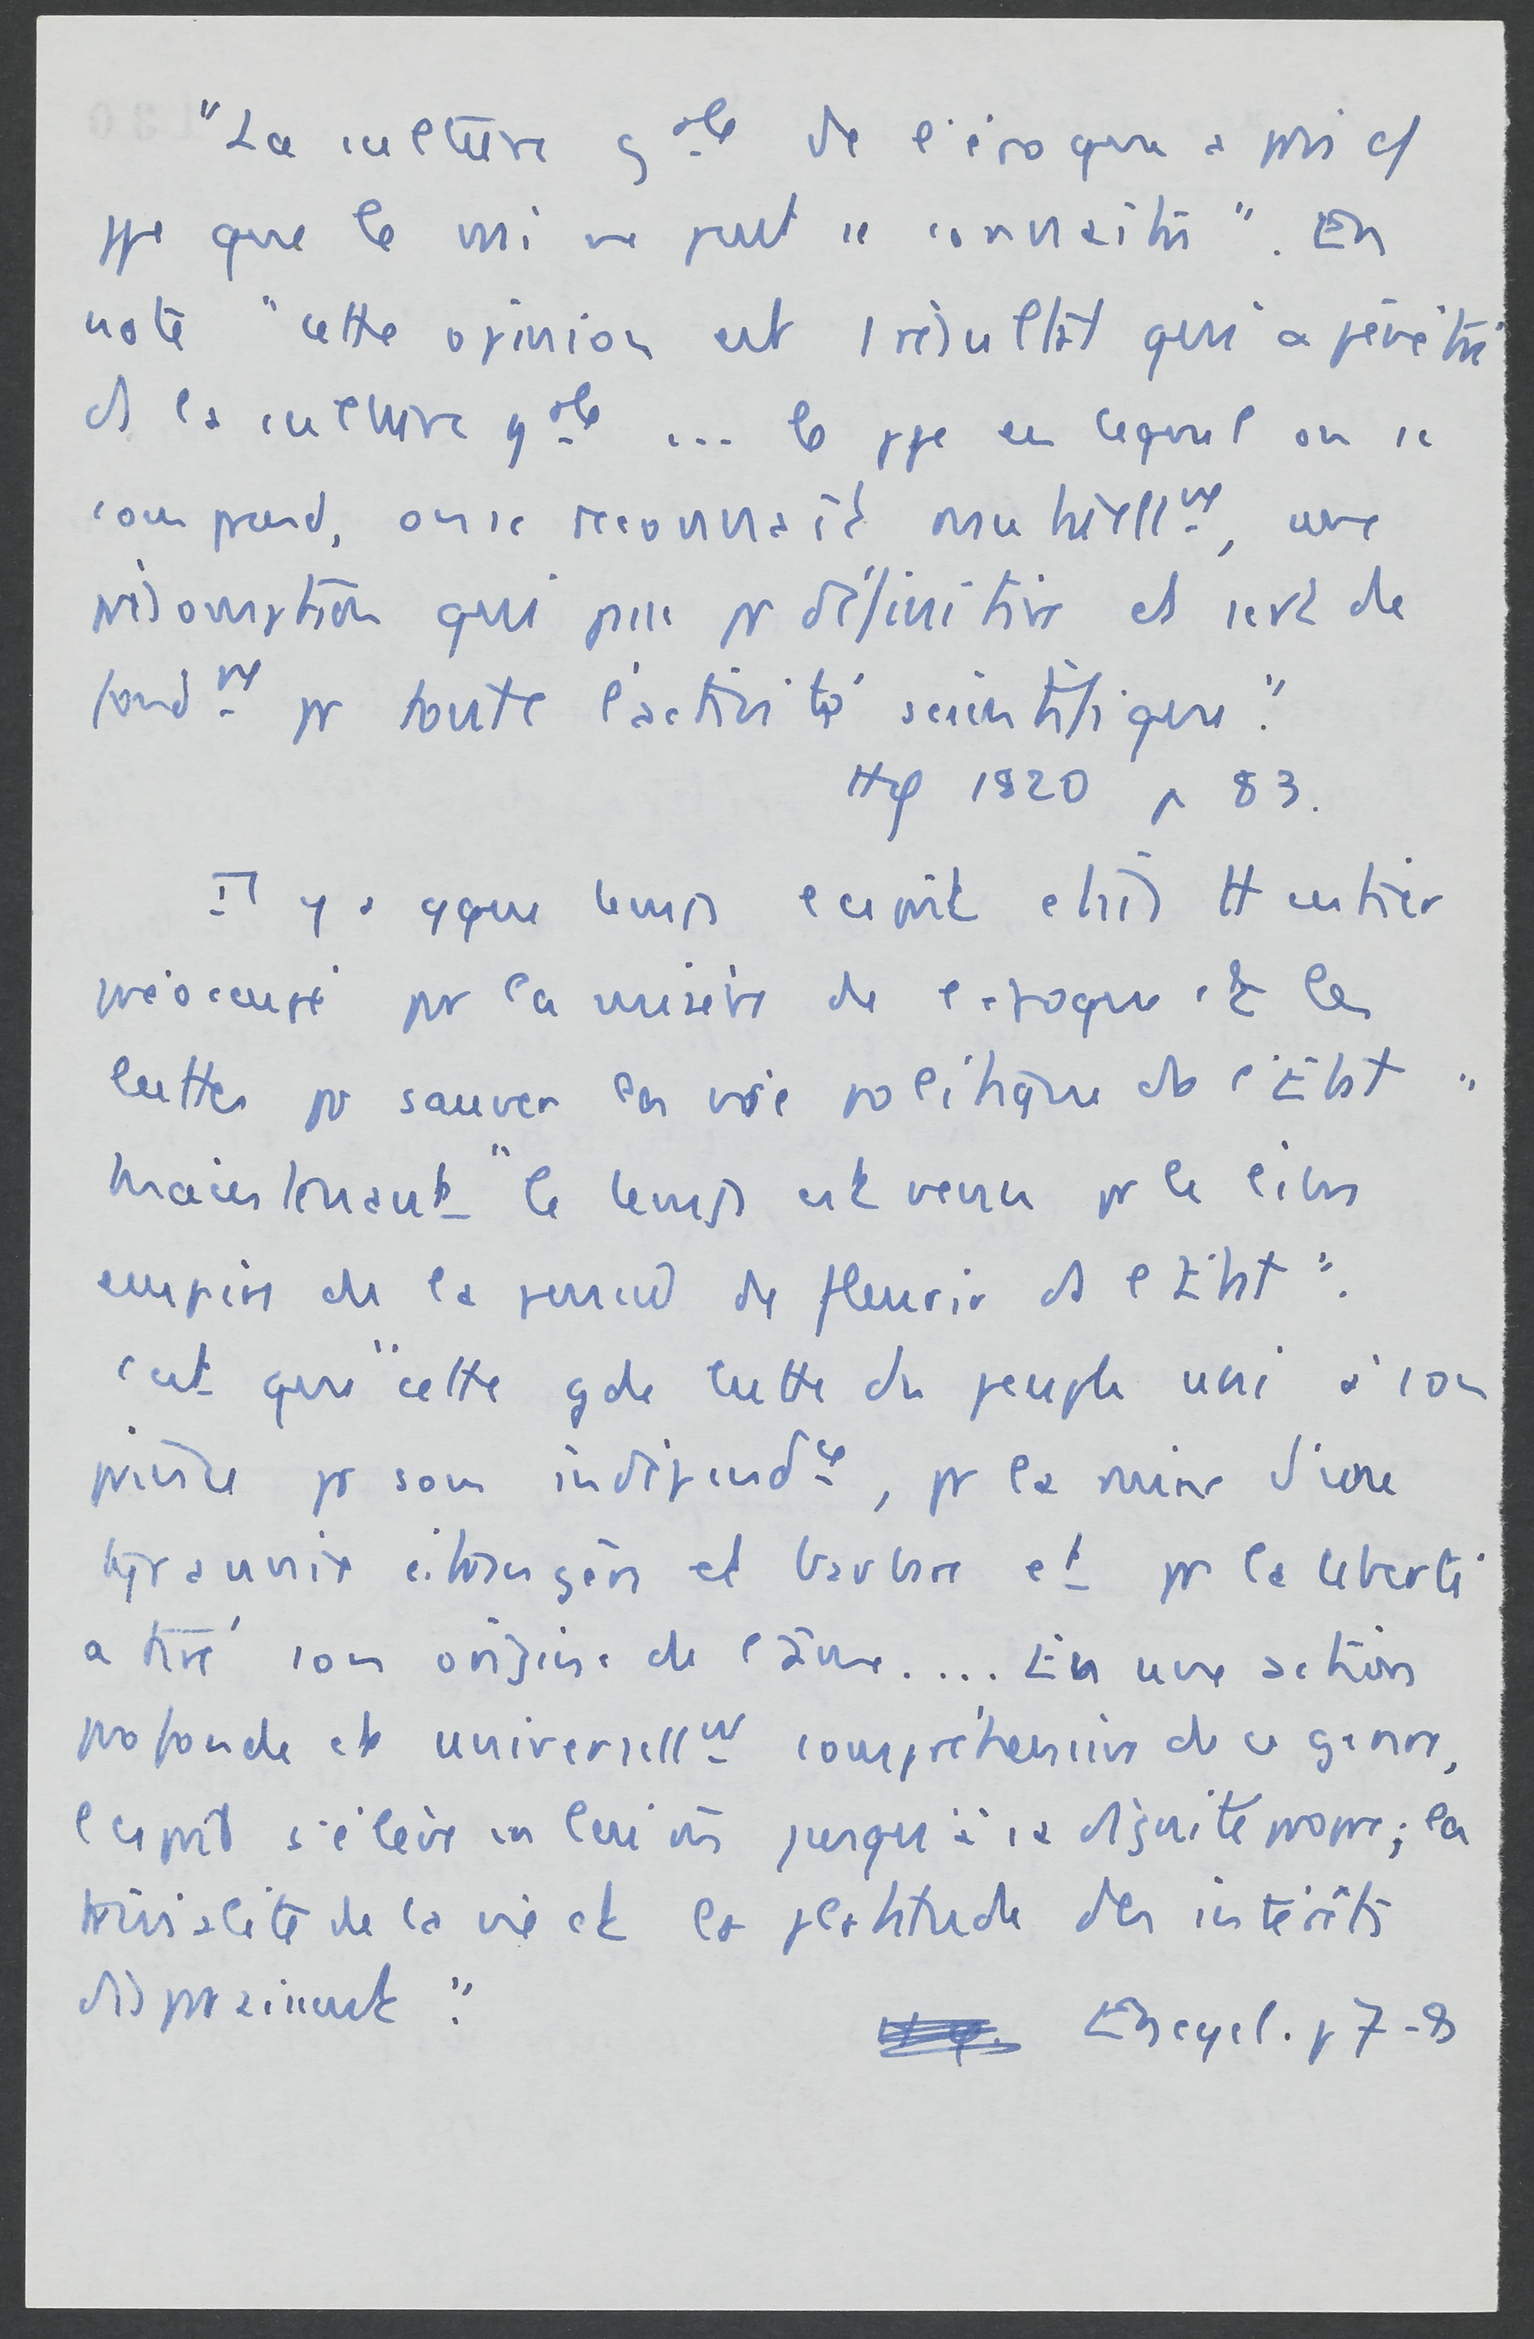 "La culture gale de l'époque a pris cs
ppe que le vrai ne peut se connaître". En
note "cette opinion est 1 résultat qui a pénétré
ds la culture gale ... le ppe en lequel on se
comprend, on se reconnaît mutuellmt, une
présomption qui passe pr définitive et sert de
fondmt pr toute l'activité scientifique".
Hφ 1820 p 83.
Il y a qque temps l'esprit était tt entier
préoccupé pr la misère de l'époque et les
luttes pr sauver la vie politique de l'Etat "
maintenant "le temps est venu pr le libre
empire de la pensée de fleurir ds l'Etat".
C'est que "cette gde lutte du peuple uni à son
prince pr son indépendce, pr la ruine d'une
tyrannie étrangère et barbare et pr la liberté
a tiré son origine de l'âme.... En une action
profonde et universellmt compréhensive de ce genre,
l'esprit s'élève en lui ms jusqu'à sa dignité propre; la
trivialité de la vie et la platitude des intérêts
disparaissent".
Encycl. p 7-8